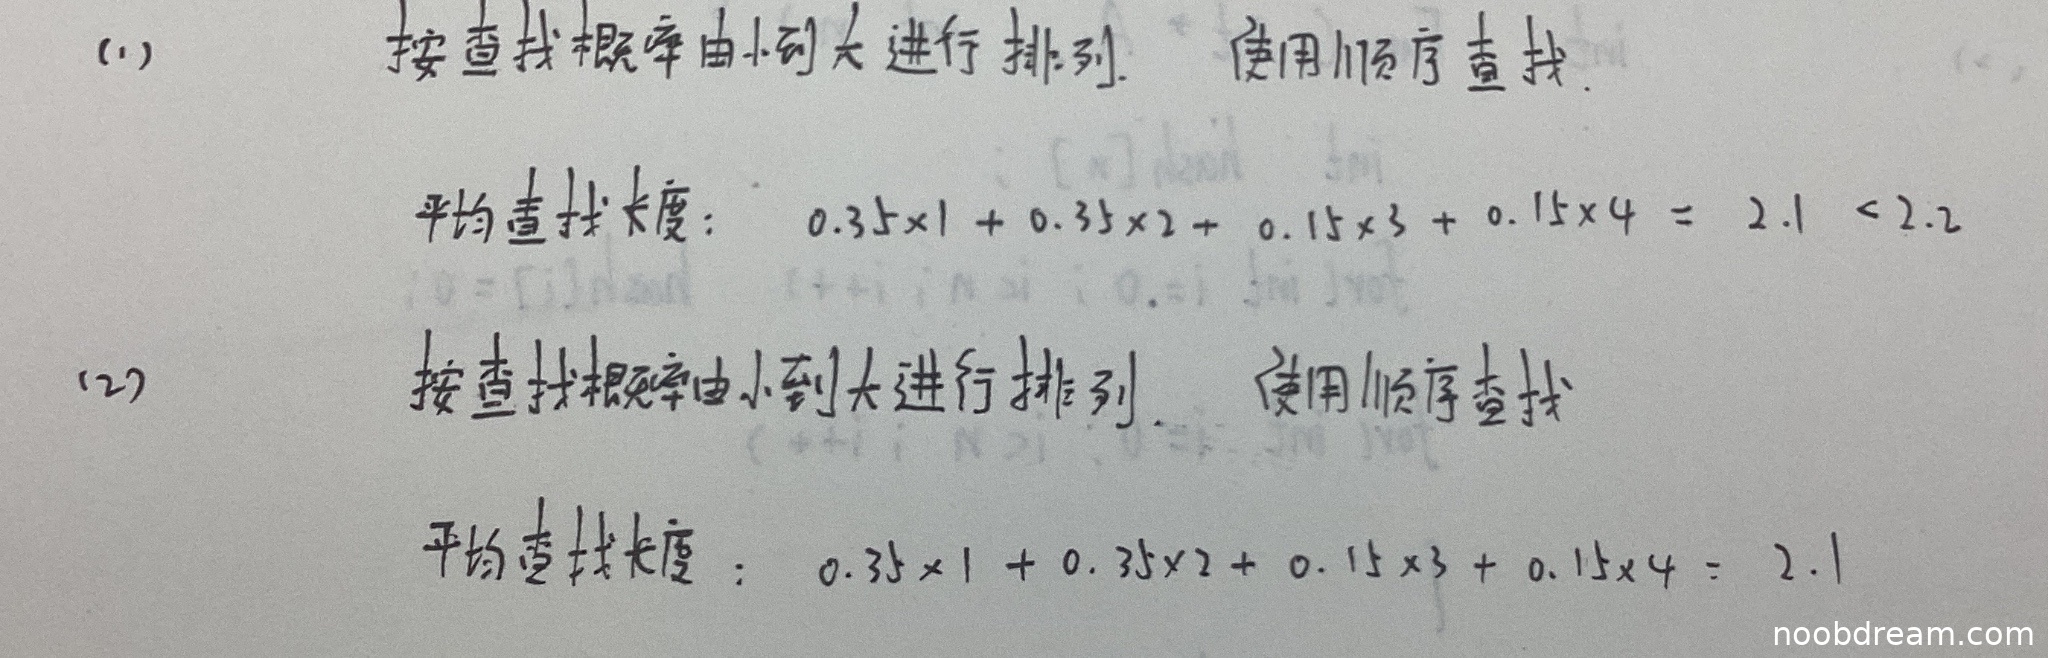 (1) 按查找概率由小到大进行排列. 使用顺序查找.
平均查找长度: 0.35×1 + 0.35×2 + 0.15×3 + 0.15×4 = 2.1 < 2.2
(2) 按查找概率由小到大进行排列. 使用顺序查找
平均查找长度: 0.35×1 + 0.35×2 + 0.15×3 + 0.15×4 = 2.1
noobdream.com